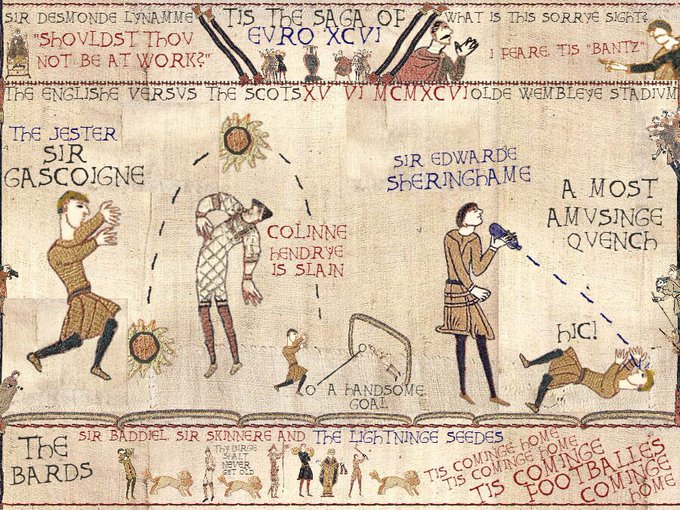 SIR DESMONDE LYNAMME
"SHOVLDST THOV
NOT BE AT WORK?"
TIS THE SAGA OF
EVRO XCVI
WHAT IS THIS SORRYE SIGHT?
I FEARE TIS "BANTZ"
THE ENGLISHE VERSVS THE SCOTS XV VI MCMXCVI OLDE WEMBLEYE STADIVM
THE JESTER
SIR
GASCOIGNE
COLINNE
HENDRYE
IS SLAIN
A HANDSOME
GOAL
SIR EDWARDE
SHERINGHAME
A MOST
AMVSINGE
QVENCH
HIC!
THE
BARDS
SIR BADDIEL SIR SKINNERE AND THE LIGHTNINGE SEEDES
THY DIRGE
SHALT
NEVER
GET OLD
TIS COMINGE HOME
TIS COMINGE HOME
TIS COMINGE
FOOTBALLE'S
COMINGE
HOME